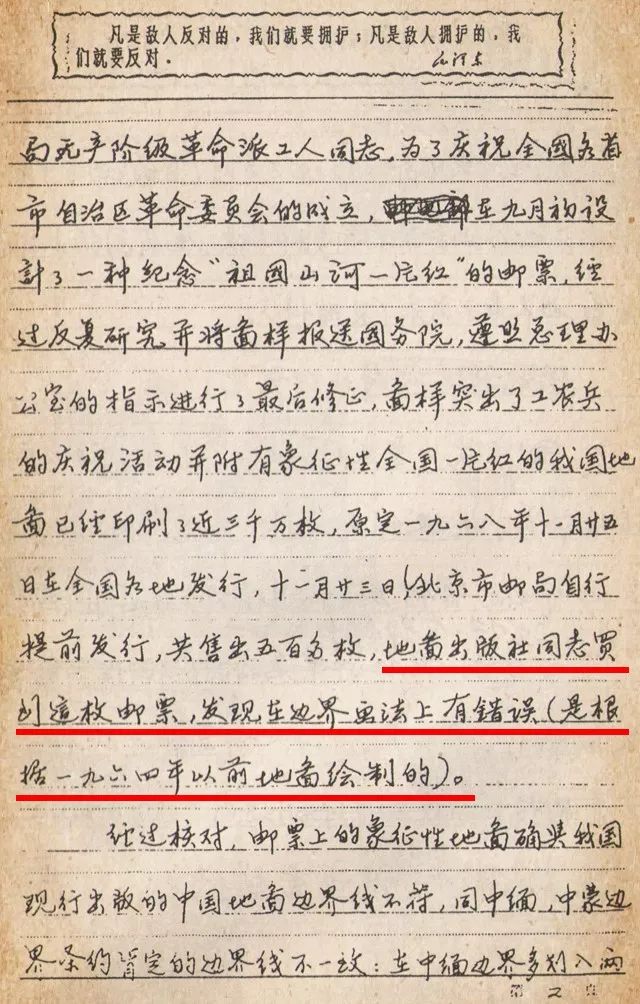 凡是敌人反对的，我们就要拥护；凡是敌人拥护的，我
们就要反对。
毛泽东
局无产阶级革命派工人同志，为了庆祝全國各省
市自治区革命委员会的成立，在九月初设
計了一种纪念“祖國山河一片红”的邮票，经
过反复研究并将啚样报送國务院，遵照总理办
公室的指示进行了最后修正，啚样突出了工农兵
的庆祝活动并附有象征性全国一片红的我国地
啚已经印刷了近三千万枚，原定一九六八年十一月廿五
日在全国各地发行，十一月廿三日北京市邮局自行
提前发行，共售出五百多枚，地啚出版社同志買
到這枚邮票，发现在边界画法上有错误（是根
据一九六四年以前地啚绘制的）。
经过核对，邮票上的象征性地啚确與我國
现行出版的中国地啚边界线不符，同中缅，中蒙边
界条约肯定的边界线不一致：在中缅边界多划入两
第 2 页